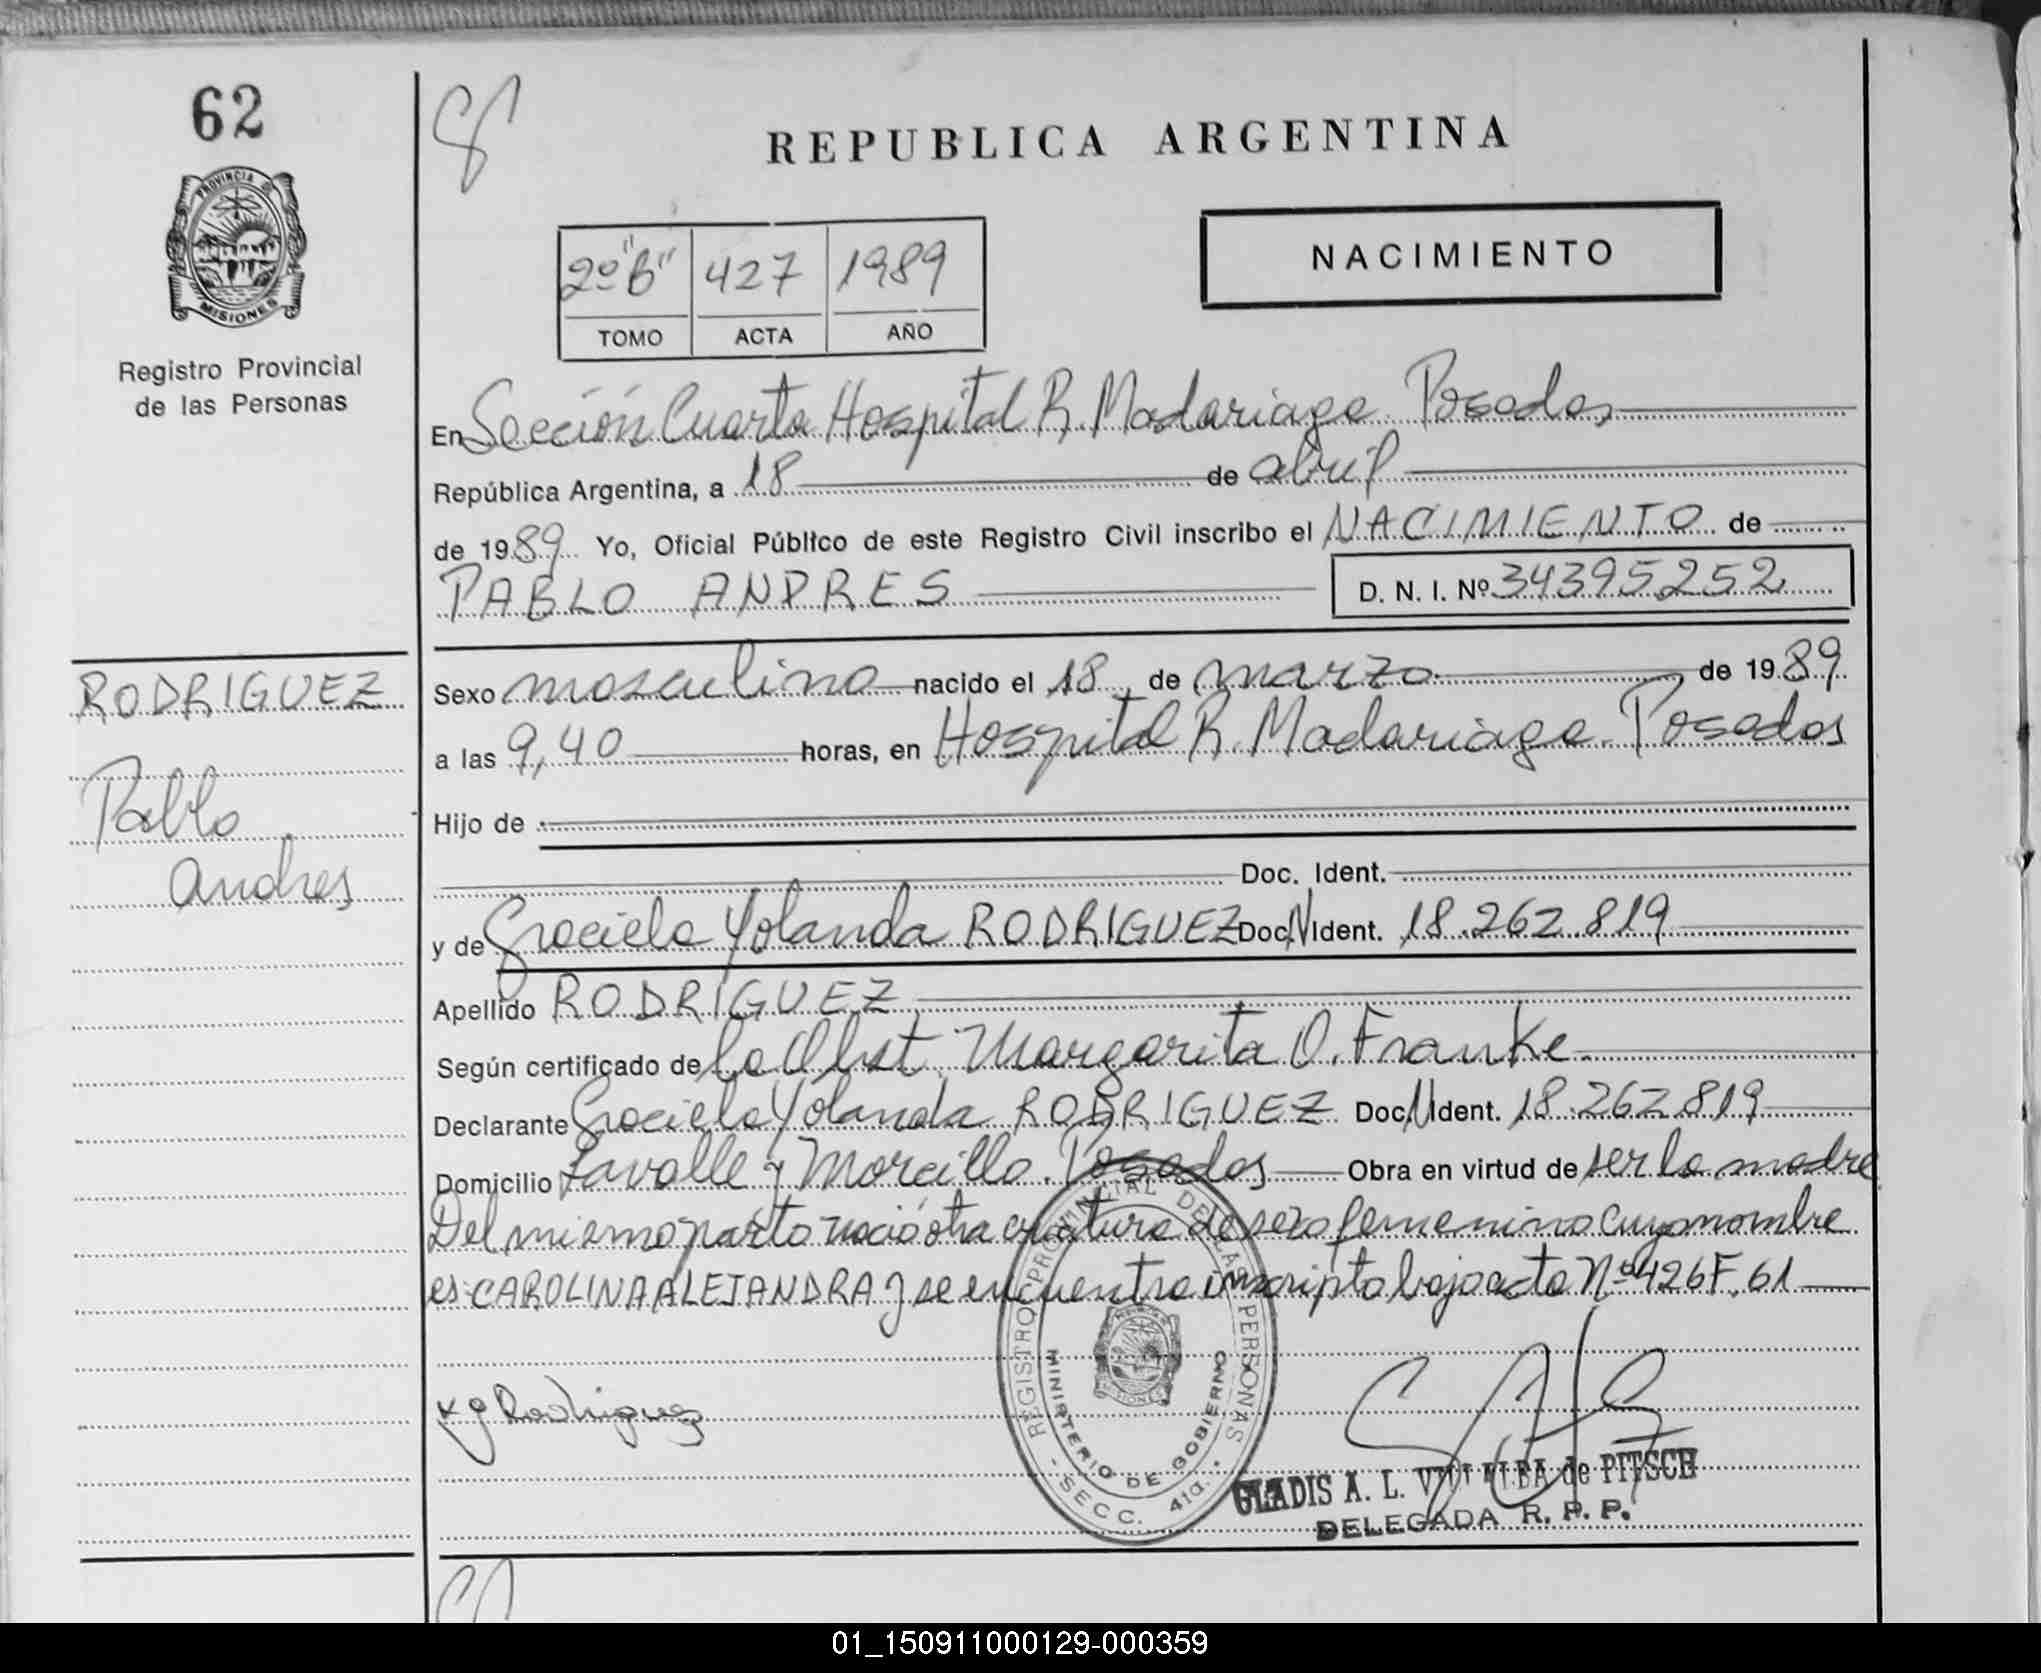 62
REPUBLICA ARGENTINA
PROVINCIA DE
MISIONES
Registro Provincial
de las Personas
NACIMIENTO
2º "B" 427 1989
TOMO ACTA AÑO
En Sección Cuarta Hospital R. Madariaga. Posadas
República Argentina, a 18 de abril
de 1989 Yo, Oficial Público de este Registro Civil inscribo el NACIMIENTO de
PABLO ANDRES D. N. I. Nº 34395252
RODRIGUEZ
Pablo
Andres
Sexo masculino nacido el 18 de marzo de 1989
a las 9,40 horas, en Hospital R. Madariaga. Posadas
Hijo de
Doc. Ident.
y de Graciela Yolanda RODRIGUEZ Doc. N Ident. 18.262.819
Apellido RODRIGUEZ
Según certificado de la Obst. Margarita O. Franke
Declarante Graciela Yolanda RODRIGUEZ Doc. N Ident. 18.262.819
Domicilio Lavalle y Morcillo. Posadas Obra en virtud de ser la madre
Del mismo parto nació otra criatura de sexo femenino cuyo nombre
es CAROLINA ALEJANDRA y se encuentra inscripta bajo acta Nº 426 F. 61
REGISTRO PROVINCIAL DE LAS PERSONAS
MINISTERIO DE GOBIERNO
SECC. 4ta.
G Rodriguez
GLADIS A. L. VILLALBA de PITSCH
DELEGADA R. P. P.
01_150911000129-000359